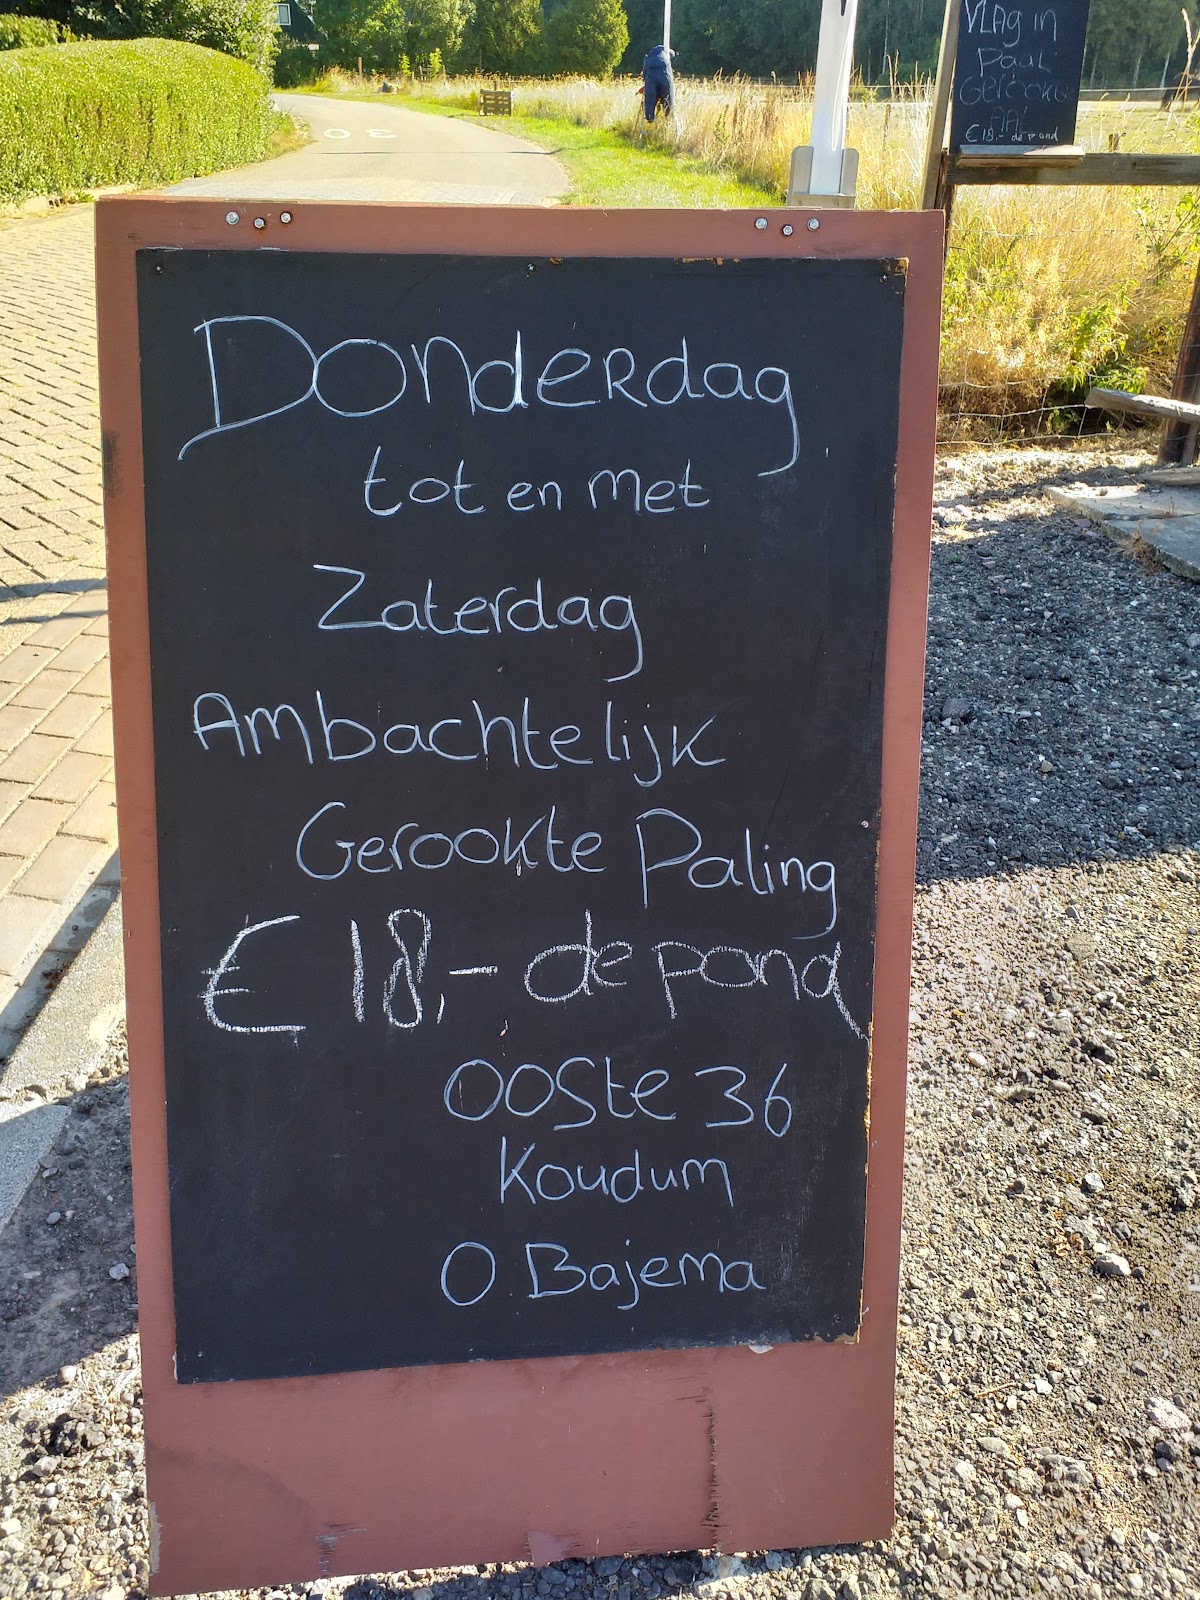 VLAG in
PaaL
Gerookte
AAL
€ 18,- de pond
30
DonderDag
tot en met
Zaterdag
Ambachtelijk
Gerookte Paling
€ 18,- de pond
Ooste 36
Koudum
O Bajema